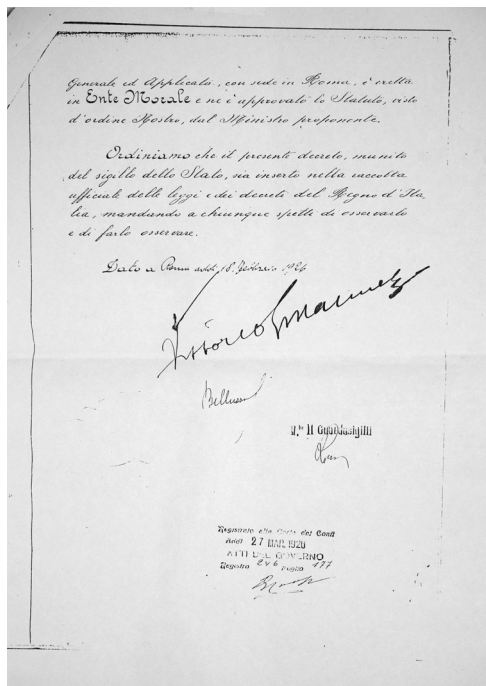 Generale ed Applicata, con sede in Roma, è eretta
in Ente Morale e ne è approvato lo Statuto, visto
d'ordine Nostro, dal Ministro proponente.
Ordiniamo che il presente decreto, munito
del sigillo dello Stato, sia inserto nella raccolta
ufficiale delle leggi e dei decreti del Regno d'Ita-
lia, mandando a chiunque spetti di osservarlo
e di farlo osservare.
Dato a Roma addì 18 Febbraio 1926
Vittorio Emanuele
Belluzzo
V.to Il Guardasigilli
Registrato alla Corte dei Conti
Addì 27 MAR. 1926
ATTI DEL GOVERNO
Registro 246 Foglio 177